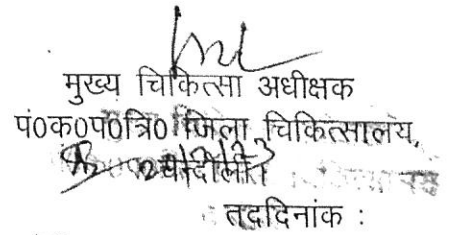 मुख्य चिकित्सा अधीक्षक
पं0क0प0त्रि0 जिला चिकित्सालय,
चन्दौली।
तददिनांक :